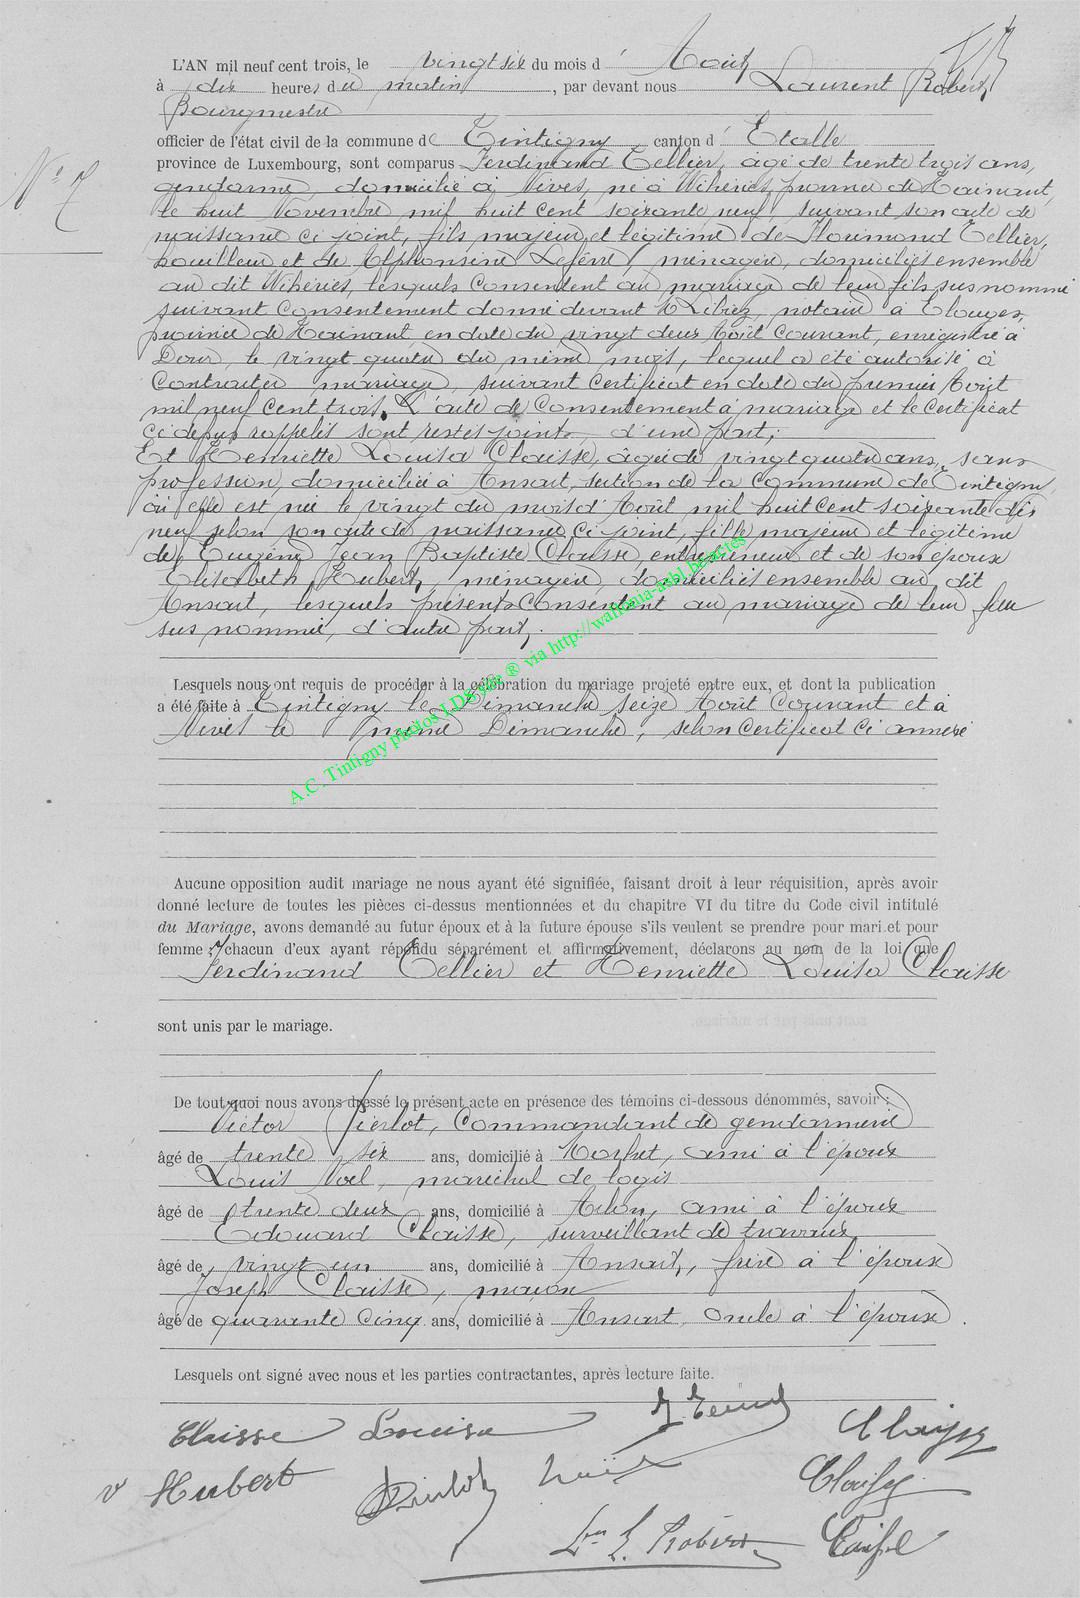 L'AN mil neuf cent trois, le vingt six du mois d' Août
à dix heures du matin, par devant nous Laurent Robert,
Bourgmestre
officier de l'état civil de la commune de Tintigny canton d' Etalle
N° 7
province de Luxembourg, sont comparus Ferdinand Tellier, âgé de trente trois ans,
gendarme, domicilié à Vives, né à Wihéries, province de Hainaut,
le huit Novembre mil huit cent soixante neuf, suivant son acte de
naissance ci joint, fils majeur et légitime de Florimond Tellier,
houilleur et de Alphonsine Lefèvre, ménagère, domiciliés ensemble
au dit Wihéries, lesquels consentent au mariage de leur fils sus nommé
suivant consentement donné devant Librez, notaire à Elouges,
province de Hainaut, en date du vingt deux Août courant, enregistré à
Dour, le vingt quatre du même mois, lequel a été autorisé à
contracter mariage, suivant certificat en date du premier Août
mil neuf cent trois. L'acte de consentement à mariage et le certificat
ci dessus rappelés sont restés joints, d'une part;
Et Henriette Louisa Claisse, âgée de vingt quatre ans, sans
profession, domiciliée à Ansart, section de la commune de Tintigny,
où elle est née le vingt du mois d'Août mil huit cent soixante dix
neuf selon son acte de naissance ci joint, fille majeure et légitime
de Eugène Jean Baptiste Claisse, entrepreneur et de son épouse
Elisabeth Hubert, ménagère, domiciliés ensemble au dit
Ansart, lesquels présents consentent au mariage de leur fille
sus nommée, d'autre part.
Lesquels nous ont requis de procéder à la célébration du mariage projeté entre eux, et dont la publication
a été faite à Tintigny le Dimanche seize Août courant et à
Vives le même Dimanche, selon certificat ci annexé
A.C. Tintigny photos LDS via ® via http://wallonia-asbl.be/actes
Aucune opposition audit mariage ne nous ayant été signifiée, faisant droit à leur réquisition, après avoir
donné lecture de toutes les pièces ci-dessus mentionnées et du chapitre VI du titre du Code civil intitulé
du Mariage, avons demandé au futur époux et à la future épouse s'ils veulent se prendre pour mari et pour
femme; chacun d'eux ayant répondu séparément et affirmativement, déclarons au nom de la loi que
Ferdinand Tellier et Henriette Louisa Claisse
sont unis par le mariage.
De tout quoi nous avons dressé le présent acte en présence des témoins ci-dessous dénommés, savoir:
Victor Pierlot, Commandant de gendarmerie
âgé de trente six ans, domicilié à Morhet, ami à l'époux
Louis Noël, maréchal de logis
âgé de trente deux ans, domicilié à Arlon, ami à l'époux
Edouard Claisse, surveillant de travaux
âgé de vingt un ans, domicilié à Ansart, frère à l'épouse
Joseph Claisse, maçon
âgé de quarante cinq ans, domicilié à Ansart oncle à l'épouse.
Lesquels ont signé avec nous et les parties contractantes, après lecture faite.
Claisse Louisa Claisse
Hubert Pierlot Noël Claisse
Robert Claisse